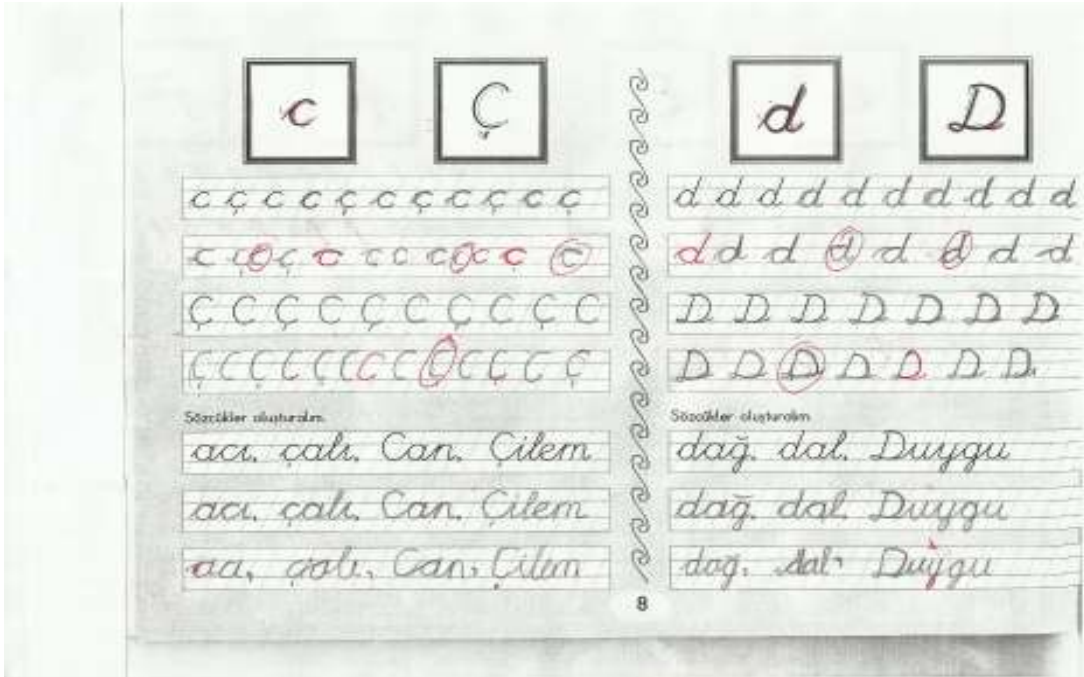 c Ç
c ç c c ç c c ç ç c ç
c ç c ç c c c c c c ç c
Ç C Ç C Ç C C Ç C Ç C
Ç C C Ç C Ç C C C C C Ç C Ç
Sözcükler oluşturalım.
acı, çalı, Can, Çilem
acı, çalı, Can, Çilem
acı, çalı, Can, Çilem
d D
d d d d d d d d d d
d d d d d d d d
D D D D D D D
D D D D D D D
Sözcükler oluşturalım
dağ, dal, Duygu
dağ, dal, Duygu
dağ, dal, Duygu
8